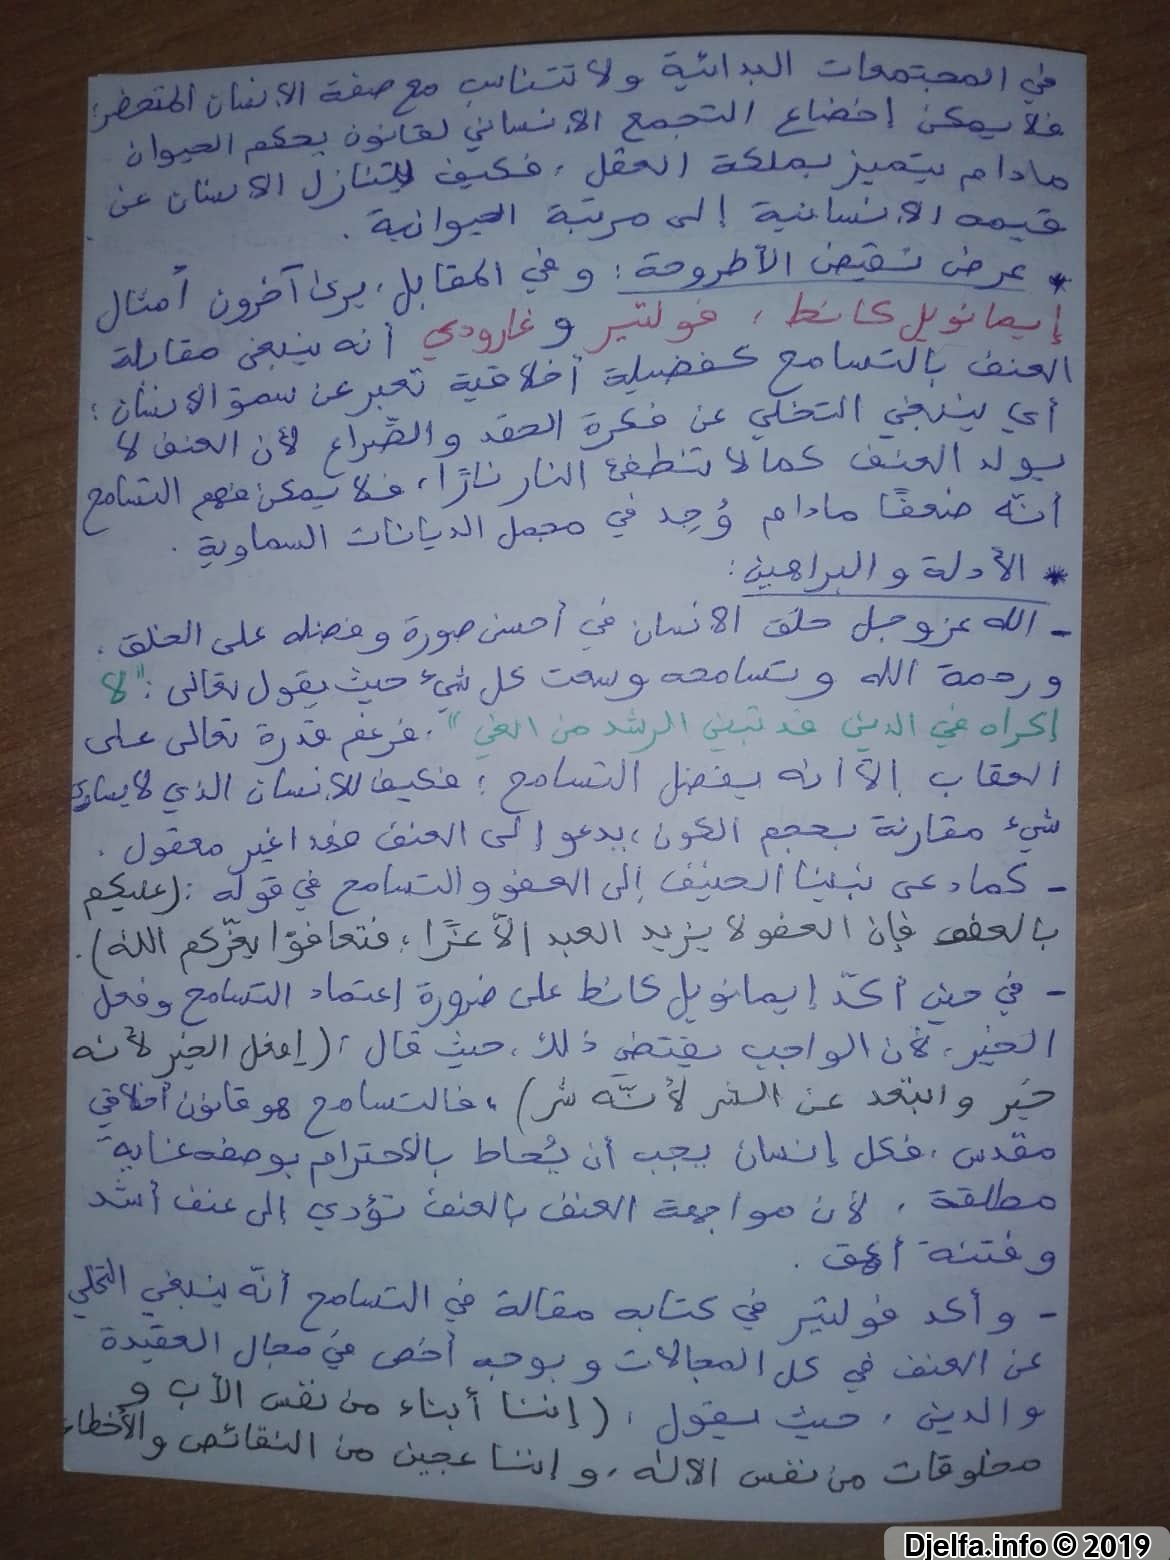 في المجتمعات البدائية ولا تتناسب مع صفة الانسان المتحضر؛
فلا يمكن إخضاع التجمع الانساني لقانون يحكم الحيوان
مادام يتميز بملكة العقل، فكيف يتنازل الانسان عن
قيمه الانسانية إلى مرتبة الحيوانية.
* عرض نقيض الأطروحة: وفي المقابل، يرى آخرون أمثال
إيمانويل كانط، فولتير و غارودي أنه ينبغي مقابلة
العنف بالتسامح كفضيلة أخلاقية تعبر عن سمو الانسان؛
أي ينبغي التخلي عن فكرة الحقد والصّراع لأن العنف لا
يولد العنف كما لا تنطفئ النار نارًا، فلا يمكن فهم التسامح
أنّه ضعفًا مادام وُجِد في مجمل الديانات السماوية.
* الأدلة و البراهين:
- الله عزوجل خلق الانسان في أحسن صورة وفضله على الخلق،
ورحمة الله وتسامحه وسعت كل شيء حيث يقول تعالى: "لا
إكراه في الدين قد تبين الرشد من الغي"، فرغم قدرة تعالى على
العقاب إلاّ أنه يفضل التسامح؛ فكيف للانسان الذي لا يساوي
شيء مقارنة بحجم الكون، يدعو إلى العنف فهذا غير معقول.
- كما دعى نبينا الحنيف إلى العفو والتسامح في قوله: (عليكم
بالعفو فإن العفو لا يزيد العبد إلاّ عزًّا، فتعافوا يعزّكم الله).
- في حين أكدّ إيمانويل كانط على ضرورة إعتماد التسامح وفعل
الخير، لأن الواجب يقتضي ذلك، حيث قال: (إفعل الخير لأنه
خير وابتعد عن الشر لأنّه شر)، فالتسامح هو قانون أخلاقي
مقدس، فكل إنسان يجب أن يُحاط بالاحترام بوصفه غاية
مطلقة، لأن مواجهة العنف بالعنف تؤدي إلى عنف أشد
وفتنة أعمق.
- وأكد فولتير في كتابه مقالة في التسامح أنّه ينبغي التخلي
عن العنف في كل المجالات وبوجه أخص في مجال العقيدة
والدين، حيث يقول: (إننا أبناء من نفس الأب و
مخلوقات من نفس الاله، وإننا عجين من النقائص والأخطاء
Djelfa.info © 2019